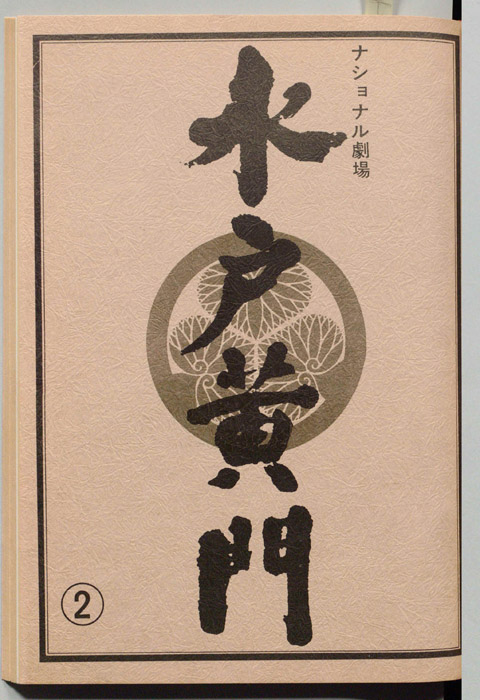 ナショナル劇場
水戸黄門
②